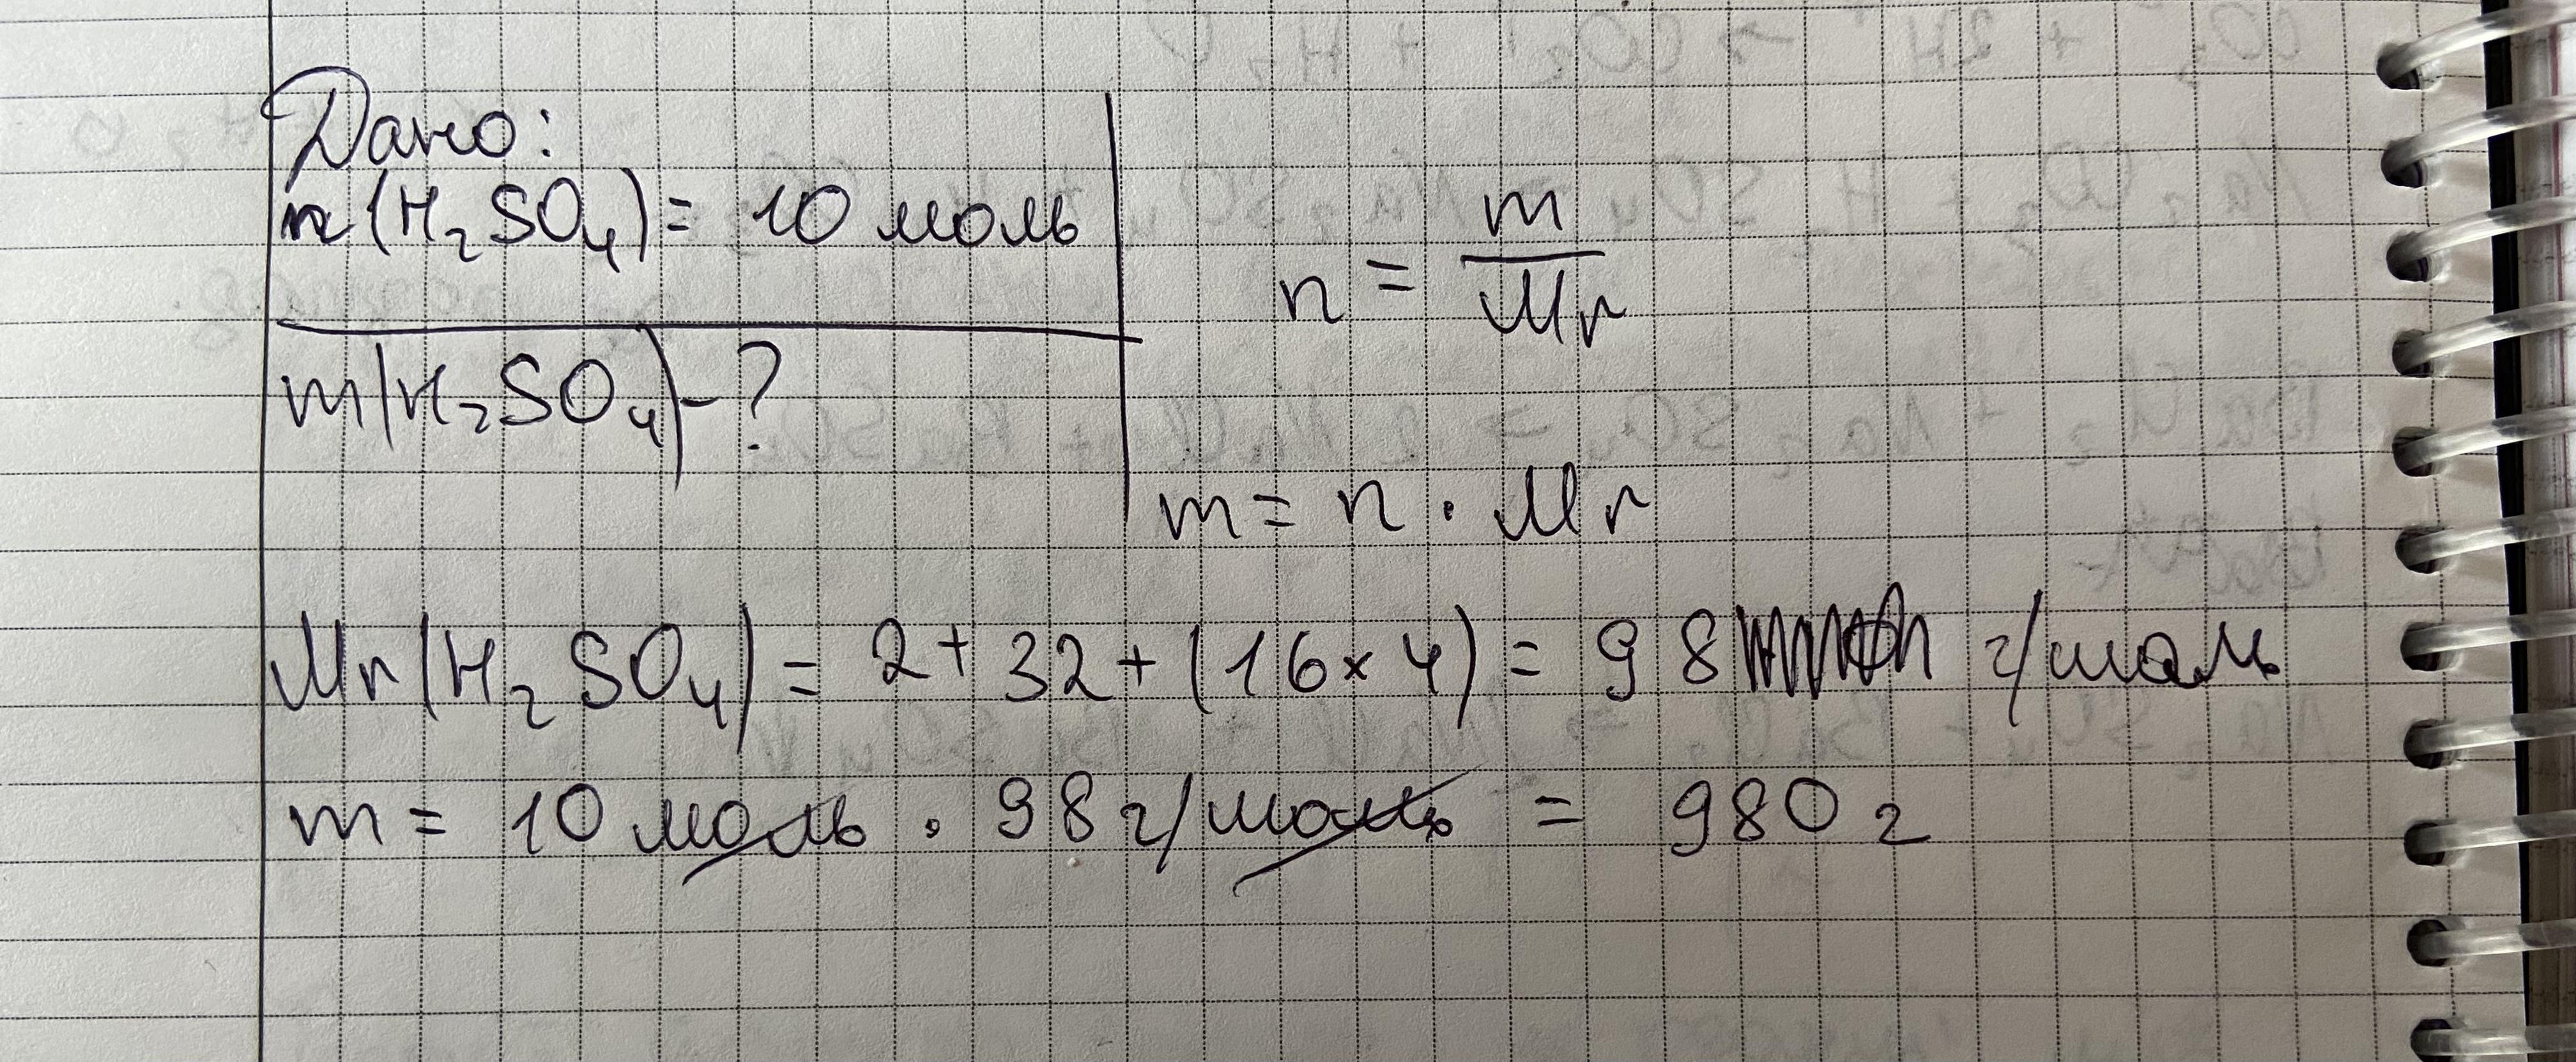 Дано:
n(H₂SO₄) = 10 моль
m(H₂SO₄) - ?
n = m/Mr
m = n · Mr
Mr(H₂SO₄) = 2 + 32 + (16 × 4) = 98 г/моль
m = 10 моль · 98 г/моль = 980 г